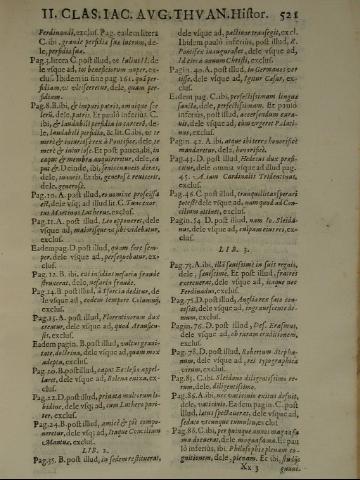 II. CLAS. IAC. AVG. THVAN. Histor. 521
Ferdinandi, exclus. Pag. eadem litera
C. ibi, grauie perfidia suæ intereas, de-
le, perfidia suæ.
Pag. 3. litera C. post illud, ex Iulius II. de
le vsque ad, tot beneficiorum nuper, ex-
clus. Ibidem in fine pag. 161.
sidiam, vt
fidiam.
Pag. 8. B. ibi, & impurè patris, atque sce
lerû, dele, patris. Et paulò inferius C.
ibi, & laudabili perfidia in carcerē, de-
le, laudabili perfidia, & lit. C. ibi, vt te
merè & iniuriosè rex à Pontifice, dele, te
merè & iniuriosè. Et post pauca, ibi, &
capta & membra acquiruere, dele, ca
pta & D. einde, ibi,
dele, iuuenis. Et ibi, generosè restituit,
dele, generosè.
Pag. 10. A. post illud, ex nomine professa
est, dele vsq; ad illud lit. C. Tunc exor
tus Martinus Lutherus, exclus.
Pag. 11. A. post illud, Leo apponeret, dele
vsque ad, maioresque subiecidebatur,
exclus.
Eadem pag. D. post illud, quam fore sem
per, dele vsque ad, persequebatur, ex-
clus.
Pag. 12. B. ibi, cùm inditae nefaria fraude
struxerat, dele, nefaria fraude.
Pag. 14. B. post illud, à Thoreia iacitur, de
le vsque ad, eodem tempore Columnij,
exclus.
Pag. 15. A. post illud, Florentinorum dux
creatur, dele vsque ad, quod Aransien-
sis, exclus.
Eadem pagin. B. post illud, vultus graui-
tate, doctrina, dele vsque ad, quam mox
adepta, exclus.
Pag. 20. B. post illud, caput Ecclesiæ appel-
laret, dele vsque ad, Bolena enixa, ex-
clus.
Pag. 22. D. post illud, priuata multorum li-
bidine, dele vsq; ad, cum Luthero pari-
ter, exclus.
Pag. 24. B. post illud, amicè & piè compo-
neretur, dele vsq; ad, Itaque Concilium
Mantuæ, exclus.
LIB. 2.
Pag. 35. B. post illud, in sedem restituerat,
dele vsque ad, pactione transegit, excl.
Ibidem paulò inferius, post illud, R.
Pontifex inauguraset, dele vsque ad,
Id circa annum Christi, exclus.
Pagin. 40. A. post illud, in Germanos ver
tisset, dele vsque ad, Igitur Cæsar, ex-
clus.
Eadem pag. C. ibi, perfectissimam lingua
sancta, dele, perfectissimam. Et paulò
inferius, post illud, accersendum cura-
uit, dele vsque ad, eò conuergere Palati-
nus, exclus.
Pagin. 42. A. ibi, atque abiterei honorificè
mandaretur, dele, honorificè.
Pag. 43. D. post illud, Hedetus dux præfi-
citur, dele omnia vsque ad illud pag.
45. A cum Cardinalis Tridentinus,
exclus.
Pag. 46. C. post illud, tranquillitas parari
potest dele vsque ad, nam quod ad Con-
cilium attinet, exclus.
Pagin. 54. D. post illud, nam Io. Sleida-
nus, dele vsque ad, culpam eius rei, ex-
clus.
LIB. 3.
Pag. 73. A. ibi, illâ sanctissimè in suis regnis,
dele, sanctissimè. Et post illud, fratres
exercuerat, dele vsque ad, itaque nec
Ferdinandus, exclus.
Pag. 75. D. post illud, Anglia rex fato con-
cessit, dele vsque ad, ingrauescente de-
mum, exclus.
Pagin. 76. D. post illud, Des. Erasmus,
dele vsque ad, ob raram eruditionem,
exclus.
Pag. 78. D. post illud, Robertum Stepha-
num, dele vsque ad, rei typographica
virum, exclus.
Pag. 85. C. ibi, Sleidano diligentissimo re-
rum, dele, diligentissimo.
Pag. 86. A. ibi, nec vaticinio exitus desuit,
dele, vaticinio. Eadem pagin. C. post
illud, latus spectaueras, dele vsque ad,
sedata vtcunque tumultu, exclus.
Pag. 88. C. ibi, per quinque annos magna fa
ma docuerat, dele magna fama. Et pau
lò inferius, ibi, Philosophiæ plenam co-
gnitionem, dele, plenam. Et ibi, studijs
Xx 3